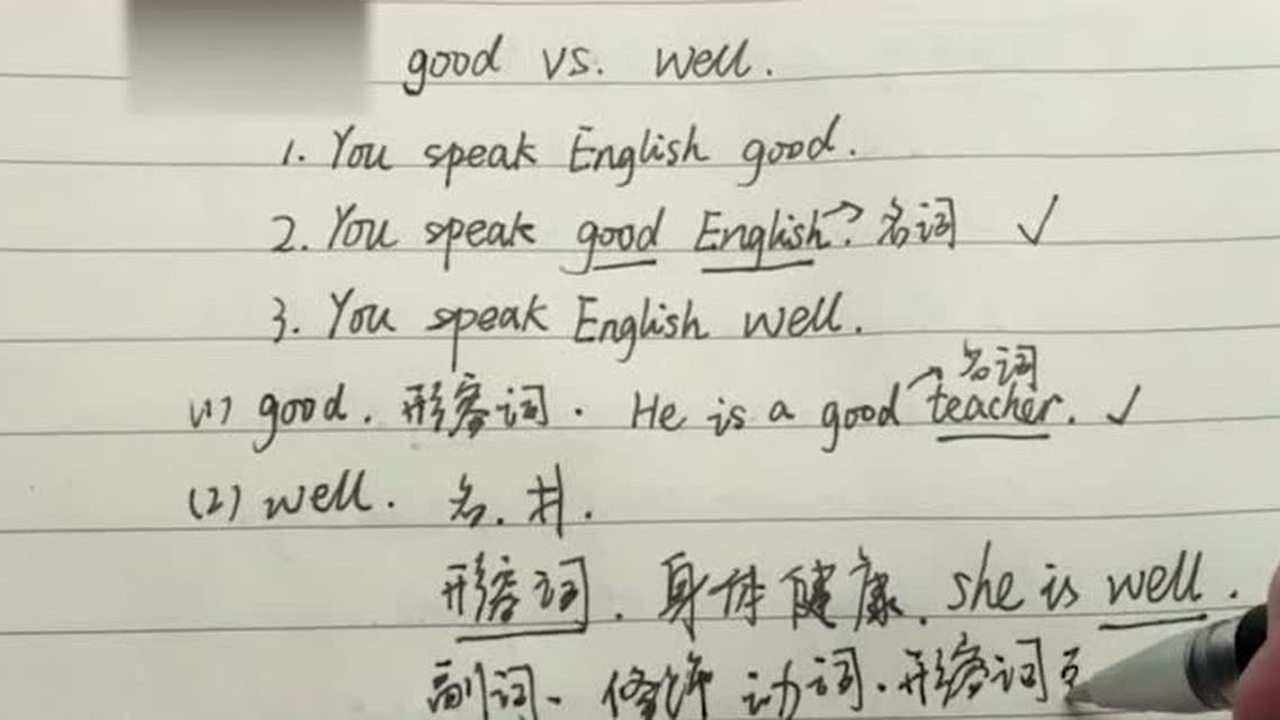 good vs. well.
1. You speak English good.
2. You speak good English. → 名词 ✓
3. You speak English well.
名词
(1) good. 形容词. He is a good teacher. ✓
(2) well. 名. 井.
形容词. 身体健康. she is well.
副词、修饰动词.形容词